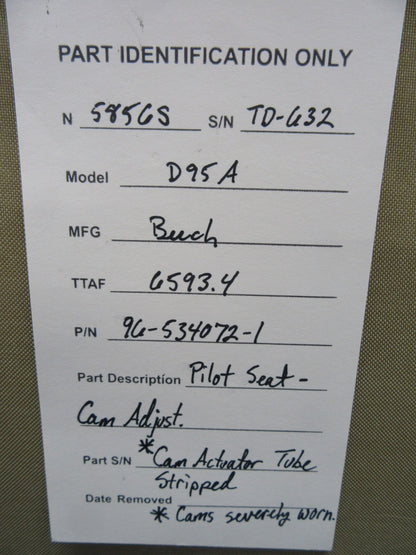 PART IDENTIFICATION ONLY
N 5856S S/N TD-632
Model D95A
MFG Beech
TTAF 6593.4
P/N 96-534072-1
Part Description Pilot Seat -
Cam Adjust.
Part S/N *Cam Actuator Tube
Stripped
Date Removed
* Cams severely worn.